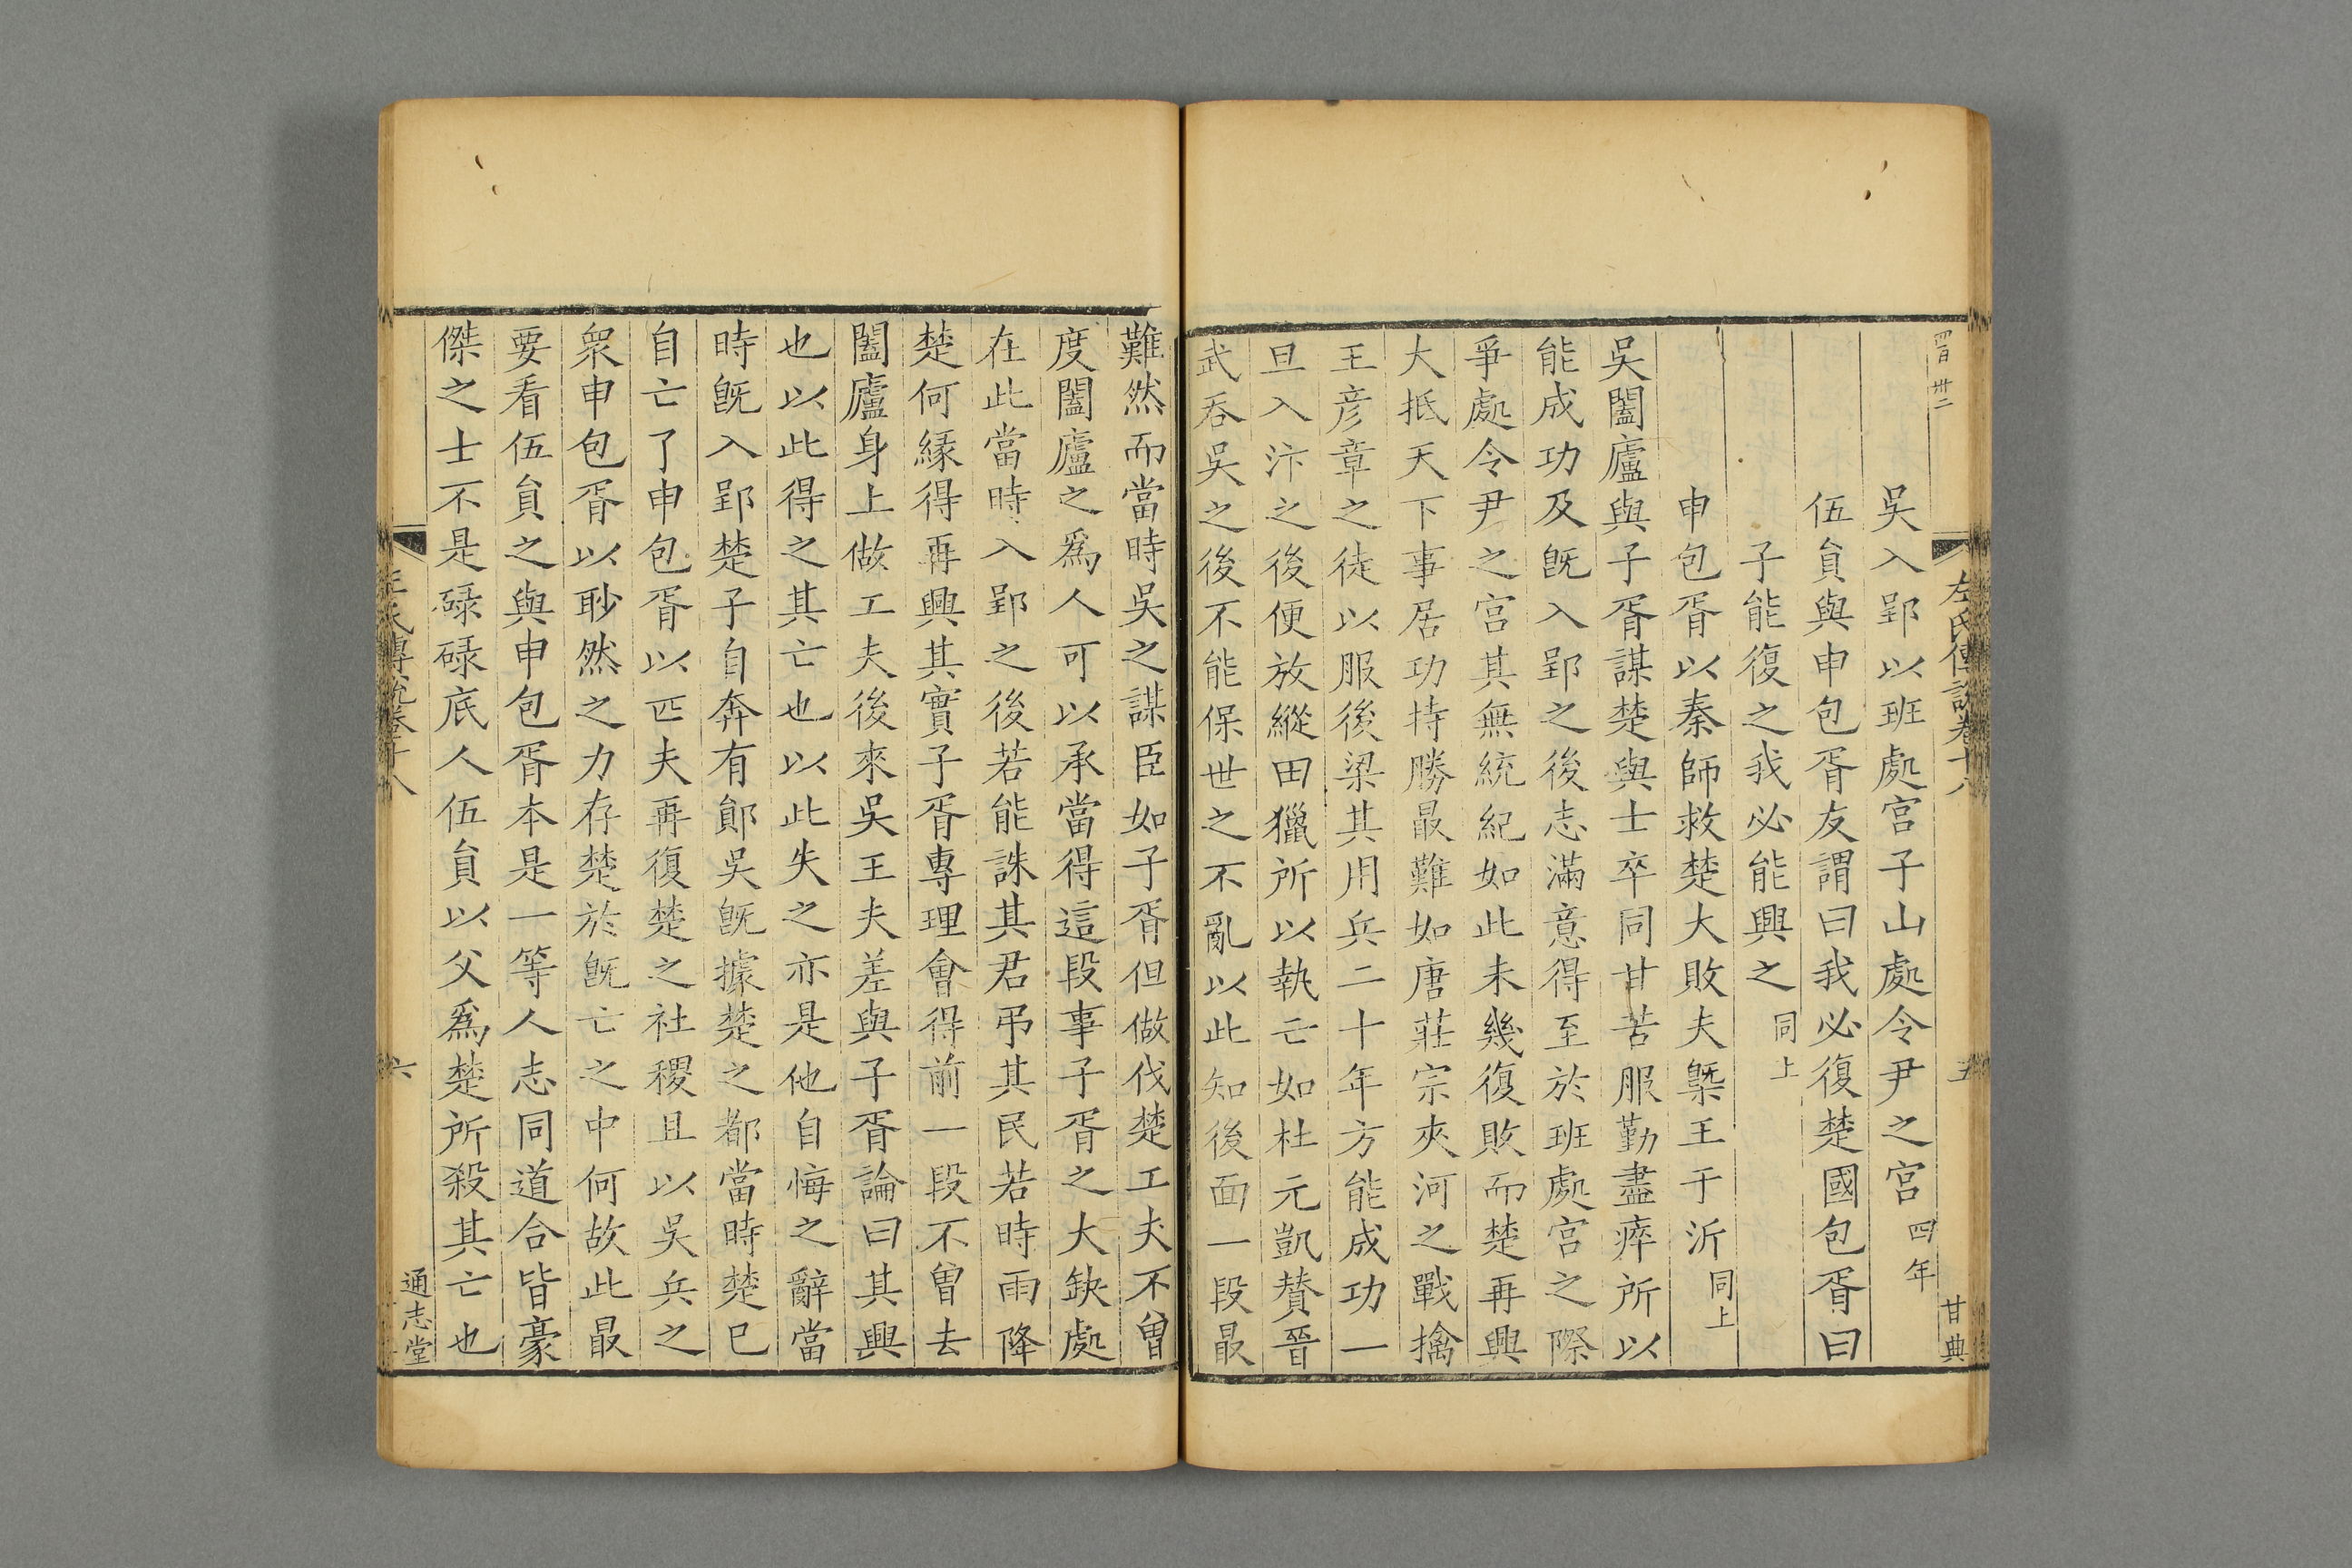 四百卅二
左氏傳說卷十八
五
甘典
吳入郢以班處宮子山處令尹之宮四年
伍員與申包胥友謂曰我必復楚國包胥曰
子能復之我必能興之同上
申包胥以秦師救楚大敗夫槩王于沂同上
吳闔廬與子胥謀楚與士卒同甘苦服勤盡瘁所以
能成功及旣入郢之後志滿意得至於班處宮之際
爭處令尹之宮其無統紀如此未幾復敗而楚再興
大抵天下事居功持勝最難如唐莊宗夾河之戰擒
王彦章之徒以服後梁其用兵二十年方能成功一
旦入汴之後便放縱田獵所以執亡如杜元凱賛晉
武吞吳之後不能保世之不亂以此知後面一段最
難然而當時吳之謀臣如子胥但做伐楚工夫不曽
度闔廬之爲人可以承當得這段事子胥之大缺處
在此當時入郢之後若能誅其君弔其民若時雨降
楚何縁得再興其實子胥專理會得前一段不曽去
闔廬身上做工夫後來吳王夫差與子胥論曰其興
也以此得之其亡也以此失之亦是他自悔之辭當
時旣入郢楚子自奔有鄖吳旣據楚之都當時楚已
自亡了申包胥以匹夫再復楚之社稷且以吳兵之
衆申包胥以眇然之力存楚於旣亡之中何故此最
要看伍員之與申包胥本是一等人志同道合皆豪
傑之士不是碌碌底人伍員以父爲楚所殺其亡也
左氏傳說卷十八
六
通志堂